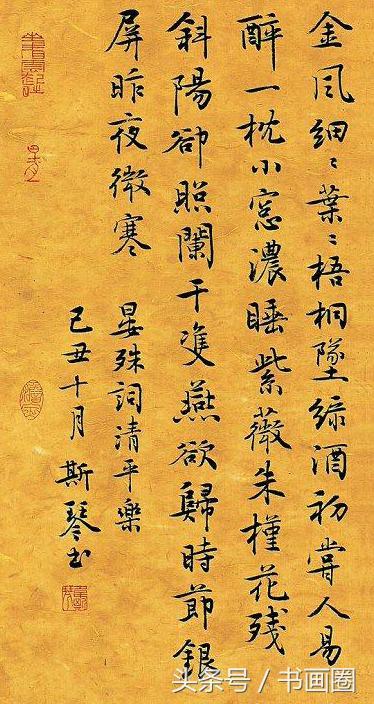 金風細〻葉〻梧桐墜綠酒初嘗人易
醉一枕小窓濃睡紫薇朱槿花残
斜陽卻照闌干雙燕欲歸時節銀
屏昨夜微寒
晏殊詞清平樂
己丑十月斯琴书
头条号 / 书画圈